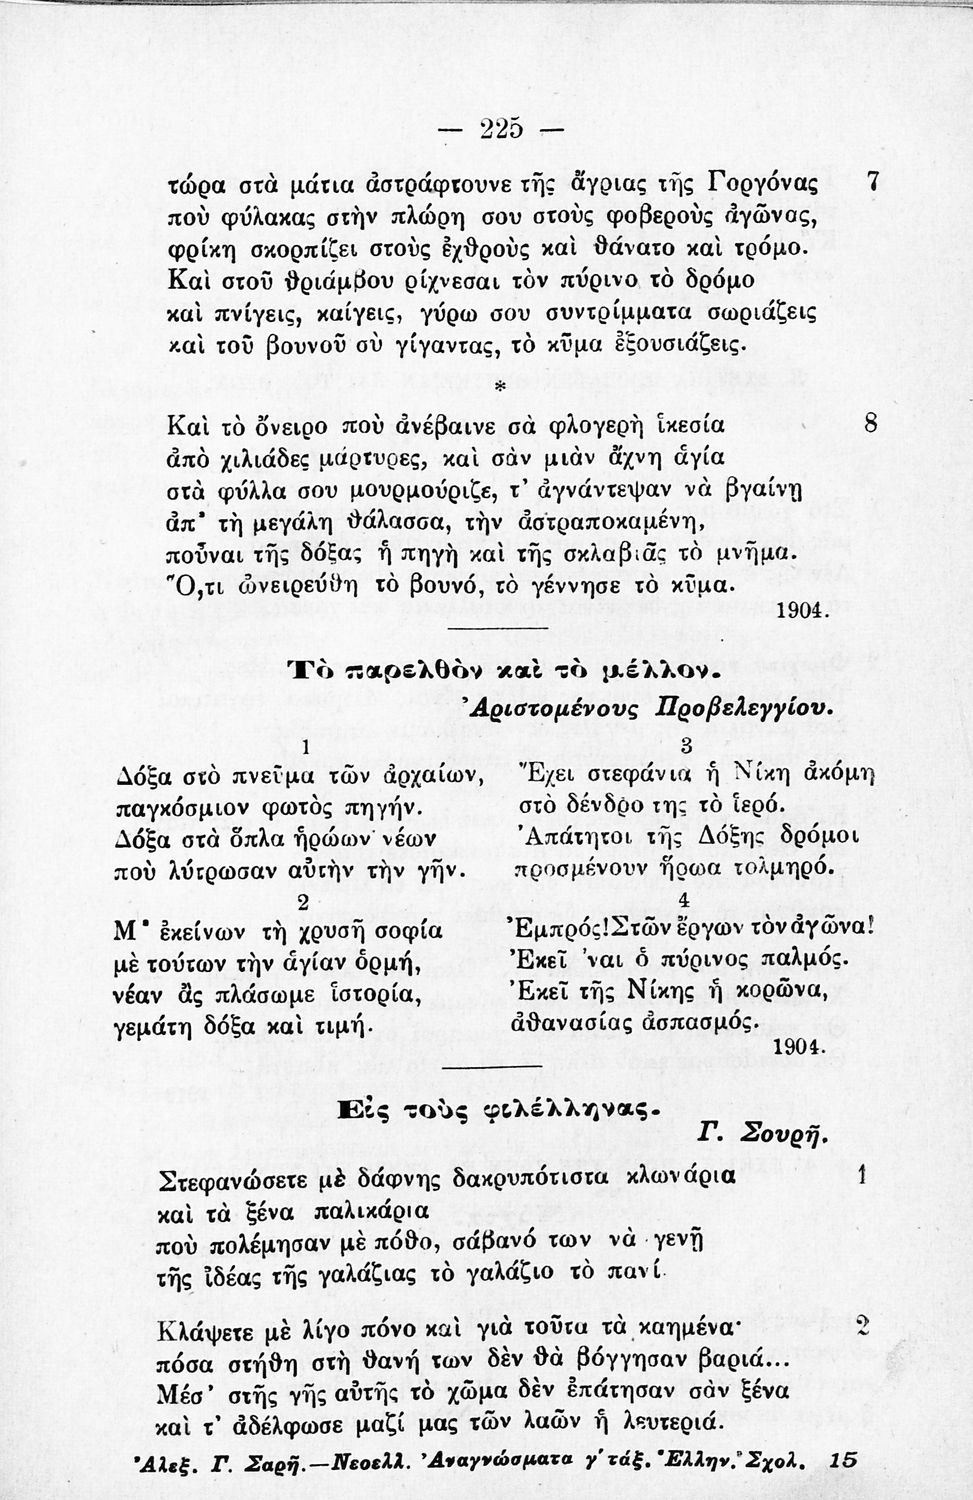 — 225 —
τώρα στὰ μάτια ἀστράφτουνε τῆς ἄγριας τῆς Γοργόνας 7
ποὺ φύλακας στὴν πλώρη σου στοὺς φοβεροὺς ἀγῶνας,
φρίκη σκορπίζει στοὺς ἐχθροὺς καὶ θάνατο καὶ τρόμο.
Καὶ στοῦ θριάμβου ρίχνεσαι τὸν πύρινο τὸ δρόμο
καὶ πνίγεις, καίγεις, γύρω σου συντρίμματα σωριάζεις
καὶ τοῦ βουνοῦ σὺ γίγαντας, τὸ κῦμα ἐξουσιάζεις.
*
Καὶ τὸ ὄνειρο ποὺ ἀνέβαινε σὰ φλογερὴ ἱκεσία 8
ἀπὸ χιλιάδες μάρτυρες, καὶ σὰν μιὰν ἄχνη ἁγία
στὰ φύλλα σου μουρμούριζε, τ' ἀγνάντεψαν νὰ βγαίνῃ
ἀπ' τὴ μεγάλη θάλασσα, τὴν ἀστραποκαμένη,
ποὖναι τῆς δόξας ἡ πηγὴ καὶ τῆς σκλαβιᾶς τὸ μνῆμα.
Ὅ,τι ὠνειρεύθη τὸ βουνό, τὸ γέννησε τὸ κῦμα.
1904.
Τὸ παρελθὸν καὶ τὸ μέλλον.
Ἀριστομένους Προβελεγγίου.
1
Δόξα στὸ πνεῦμα τῶν ἀρχαίων,
παγκόσμιον φωτὸς πηγήν.
Δόξα στὰ ὅπλα ἡρώων νέων
ποὺ λύτρωσαν αὐτὴν τὴν γῆν.
2
Μ' ἐκείνων τὴ χρυσῆ σοφία
μὲ τούτων τὴν ἁγίαν ὁρμή,
νέαν ἂς πλάσωμε ἱστορία,
γεμάτη δόξα καὶ τιμή.
3
Ἔχει στεφάνια ἡ Νίκη ἀκόμη
στὸ δένδρο της τὸ ἱερό.
Ἀπάτητοι τῆς Δόξης δρόμοι
προσμένουν ἥρωα τολμηρό.
4
Ἐμπρός! Στῶν ἔργων τὸν ἀγῶνα!
Ἐκεῖ 'ναι ὁ πύρινος παλμός.
Ἐκεῖ τῆς Νίκης ἡ κορῶνα,
ἀθανασίας ἀσπασμός.
1904.
Εἰς τοὺς φιλέλληνας.
Γ. Σουρῆ.
Στεφανώσετε μὲ δάφνης δακρυπότιστα κλωνάρια 1
καὶ τὰ ξένα παλικάρια
ποὺ πολέμησαν μὲ πόθο, σάβανό των νὰ γενῇ
τῆς ἰδέας τῆς γαλάζιας τὸ γαλάζιο τὸ πανί.
Κλάψετε μὲ λίγο πόνο καὶ γιὰ τοῦτα τὰ καημένα· 2
πόσα στήθη στὴ θανή των δὲν θὰ βόγγησαν βαριά...
Μέσ' στῆς γῆς αὐτῆς τὸ χῶμα δὲν ἐπάτησαν σὰν ξένα
καὶ τ' ἀδέλφωσε μαζί μας τῶν λαῶν ἡ λευτεριά.
Ἀλεξ. Γ. Σαρῆ.—Νεοελλ. Ἀναγνώσματα γ' τάξ. Ἑλλην. Σχολ. 15